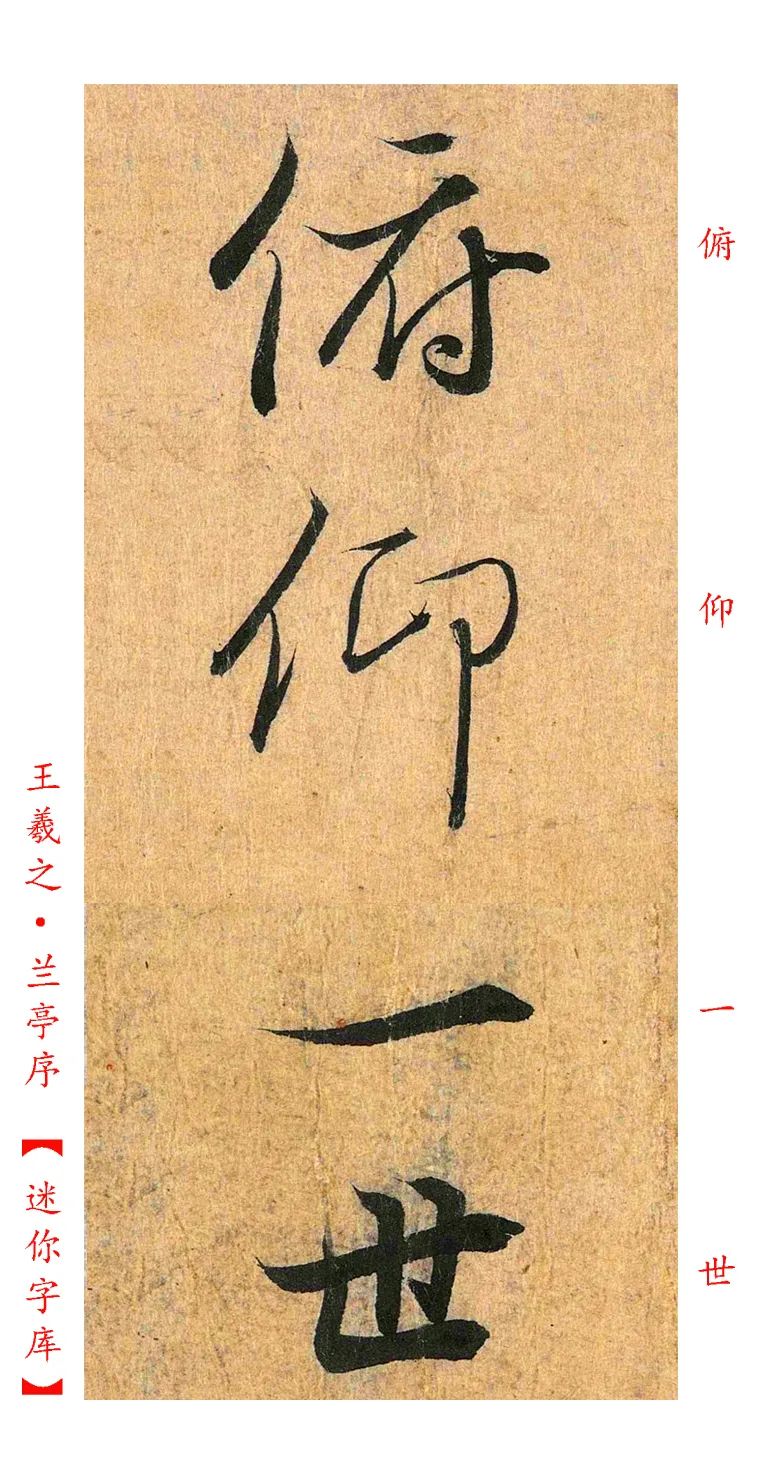 俯仰一世
俯仰一世
王羲之·兰亭序【迷你字库】